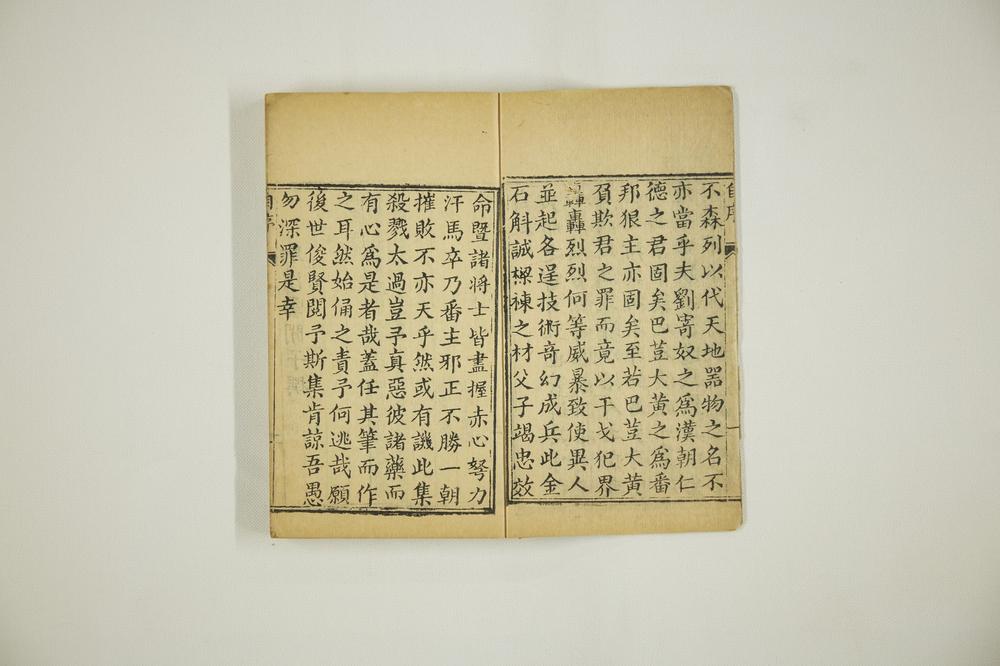 自序
不森列以代天地器物之名不
亦當乎夫劉寄奴之爲漢朝仁
德之君固矣巴荳大黃之爲番
邦狠主亦固矣至若巴荳大黃
負欺君之罪而竟以干戈犯界
轟轟烈烈何等威暴致使異人
並起各逞技術奇幻成兵此金
石斛誠樑棟之材父子竭忠效
命暨諸将士皆盡握赤心努力
汗馬卒乃番主邪正不勝一朝
摧敗不亦天乎然或有譏此集
殺戮太過豈予真惡彼諸藥而
有心爲是者哉蓋任其筆而作
之耳然始俑之責予何逃哉願
後世俊賢閱予斯集肯諒吾愚
勿深罪是幸